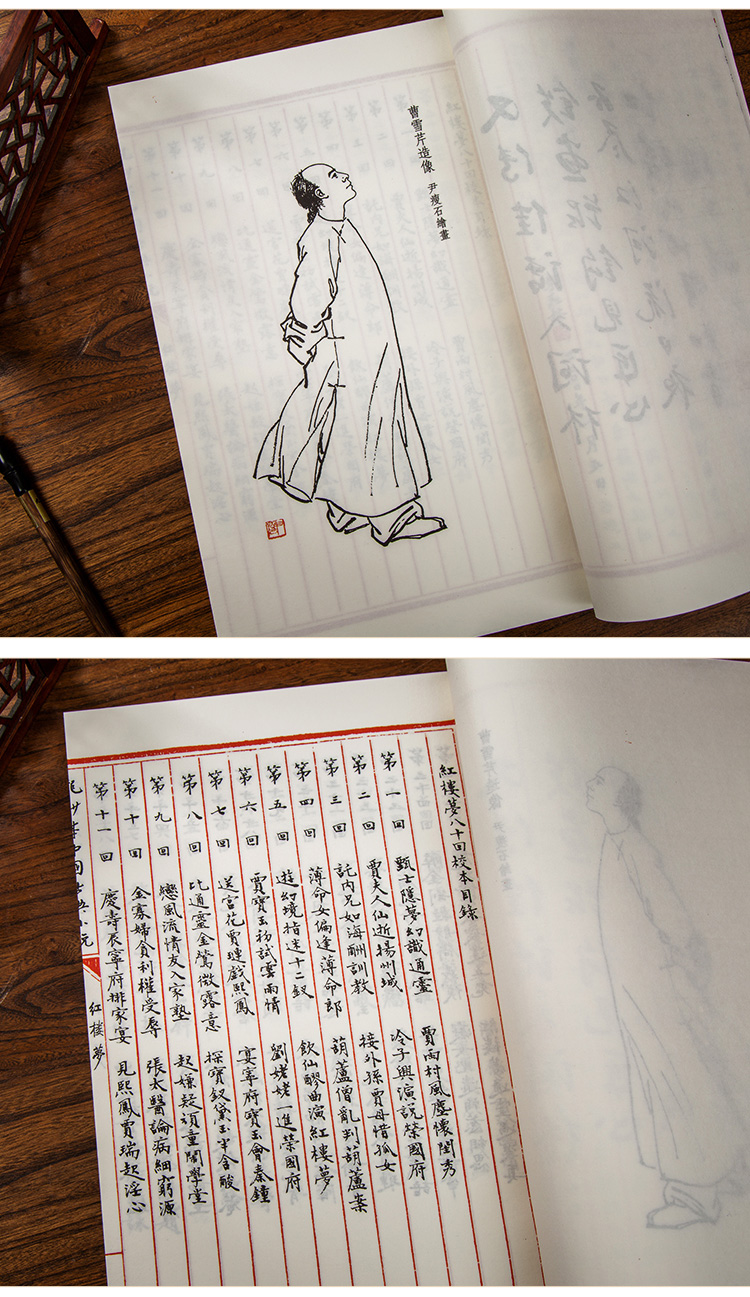 曹雪芹造像 尹瘦石繪畫
紅樓夢八十回校本目錄
第一回 甄士隱夢幻識通靈 賈雨村風塵懷閨秀
第二回 賈夫人仙逝揚州城 冷子興演說榮國府
第三回 託内兄如海酬訓教 接外孫賈母惜孤女
第四回 薄命女偏逢薄命郎 葫蘆僧亂判葫蘆案
第五回 遊幻境指迷十二釵 飲仙醪曲演紅樓夢
第六回 賈寶玉初試雲雨情 劉姥姥一進榮國府
第七回 送宮花賈璉戲熙鳳 宴寧府寶玉會秦鐘
第八回 比通靈金鶯微露意 探寶釵黛玉半含酸
第九回 戀風流情友入家塾 起嫌疑頑童鬧學堂
第十回 金寡婦貪利權受辱 張太醫論病細窮源
第十一回 慶壽辰寧府排家宴 見熙鳳賈瑞起淫心
紅樓夢